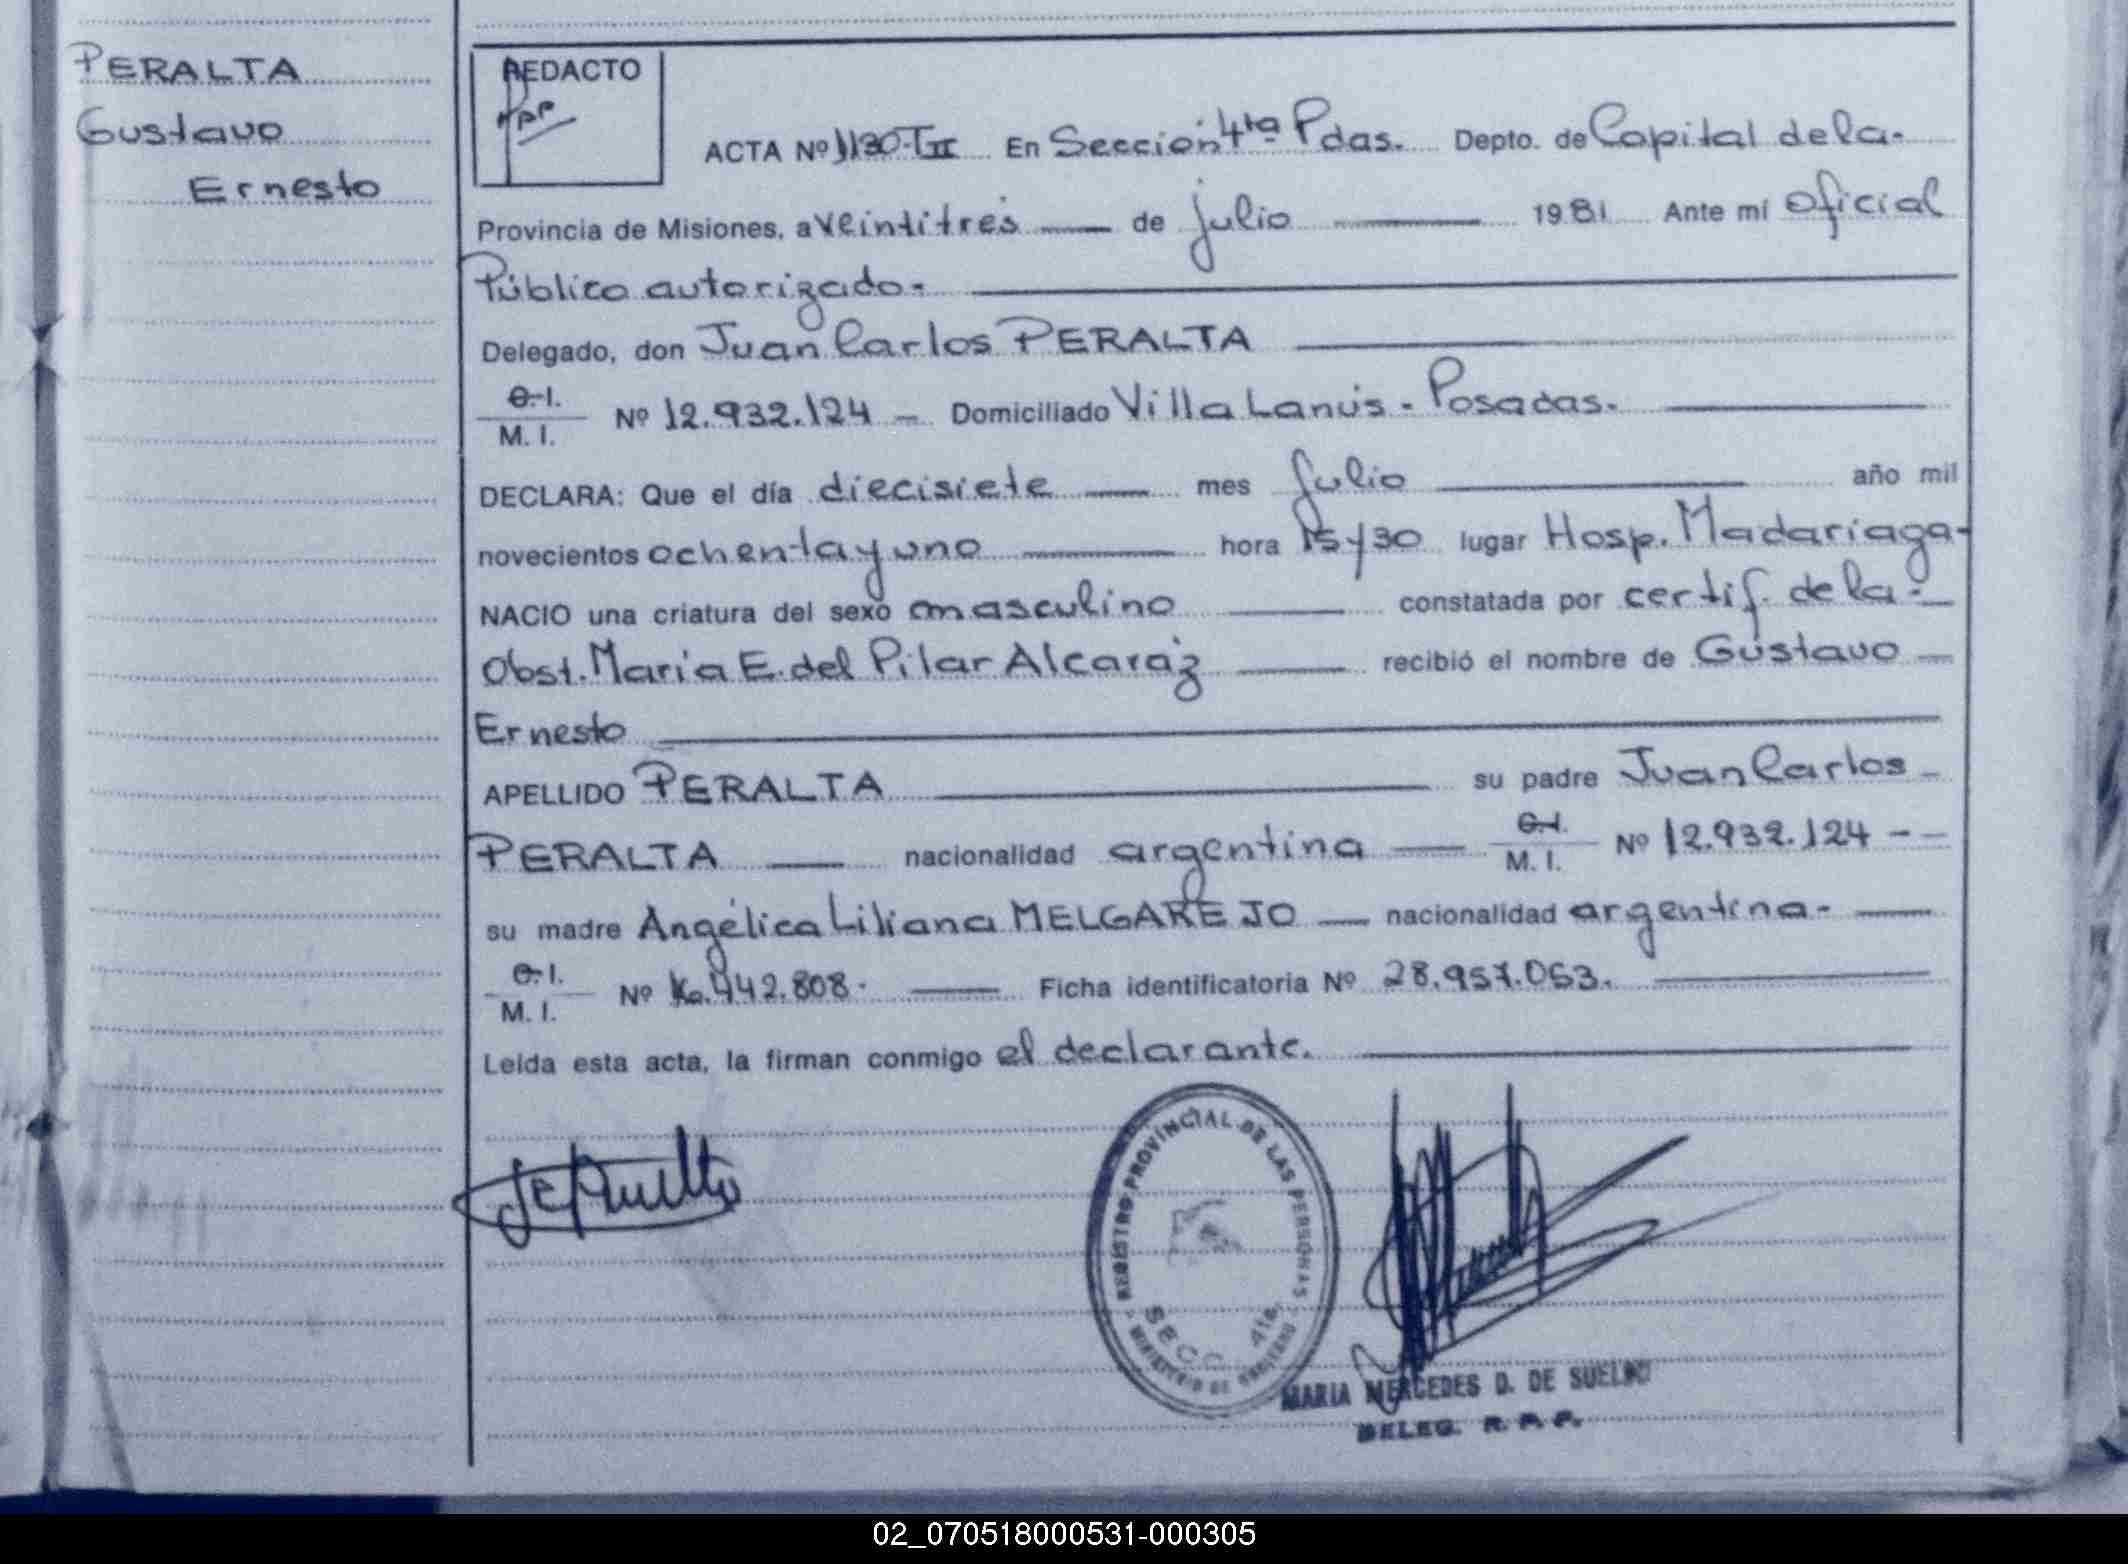 PERALTA
Gustavo
Ernesto
REDACTO
ACTA Nº 1130-TII En Sección 4ta Pdas. Depto. de Capital de la-
Provincia de Misiones, a veintitrés de julio 1981 Ante mí Oficial
Público autorizado.
Delegado, don Juan Carlos PERALTA
C.I.
M. I. Nº 12.932.124 - Domiciliado Villa Lanús - Posadas.
DECLARA: Que el día diecisiete mes Julio año mil
novecientos ochenta y uno hora 15 y 30 lugar Hosp. Madariaga-
NACIO una criatura del sexo masculino constatada por certif. de la-
Obst. María E. del Pilar Alcaráz recibió el nombre de Gustavo
Ernesto
APELLIDO PERALTA su padre Juan Carlos
PERALTA nacionalidad argentina C.I. M. I. Nº 12.932.124 - -
su madre Angélica Liliana MELGAREJO nacionalidad argentina-
C.I.
M. I. Nº 442.808. Ficha identificatoria Nº 28.957.053.
Leída esta acta, la firman conmigo el declarante.
REGISTRO PROVINCIAL DE LAS PERSONAS
SECC 4ta.
MINISTERIO DE GOBIERNO
MARIA MERCEDES D. DE SUELDO
DELEG. R. P. P.
02_070518000531-000305